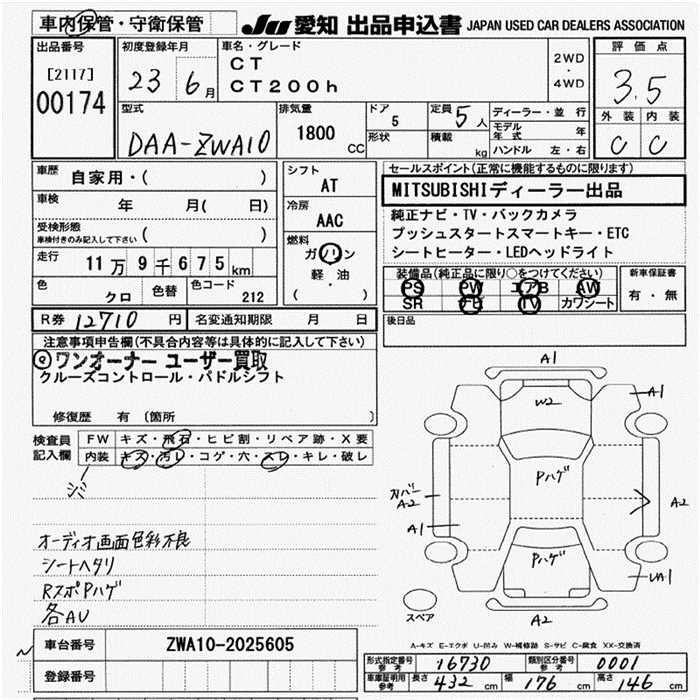 車内保管・守衛保管
JU 愛知 出品申込書 JAPAN USED CAR DEALERS ASSOCIATION
出品番号
[2117]
00174
初度登録年月
23 6月
車名・グレード
CT
CT200h
2WD
・
4WD
評価点
3.5
外装 内装
C C
型式
DAA-ZWA10
排気量
1800 CC
ドア
5
形状
定員 5人
積載 kg
ディーラー・並行
モデル年式 年
ハンドル 左・右
車歴
自家用・( )
車検
年 月( 日)
受検形態
車検付きのみ記入して下さい ( )
走行
11万9千675km
色
クロ
色替
色コード
212
シフト
AT
冷房
AAC
燃料
ガソリン
軽・油
( )
セールスポイント(正常に機能するものに限ります)
MITSUBISHIディーラー出品
純正ナビ・TV・バックカメラ
プッシュスタートスマートキー・ETC
シートヒーター・LEDヘッドライト
装備品(純正品に限り○をつけてください)
PS PW エアB AW
SR ナビ TV カワシート
新車保証書
有・無
R券 12710 円
名変通知期限 月 日
後日品
注意事項申告欄(不具合内容等は具体的に記入して下さい)
ワンオーナー ユーザー買取
クルーズコントロール・パドルシフト
修復歴 有 〔箇所 〕
検査員記入欄
FW キズ・飛石・ヒビ割・リペア跡・X要
内装 キズ・汚レ・コゲ・穴・スレ・キレ・破レ
シミ
オーディオ画面色彩不良
シートヘタリ
RスポPハゲ
各AU
A1
A1
W2
Pハゲ
カバー
A2
A2
A1
Pハゲ
UA1
スペア
A2
A-キズ E-エクボ U-凹み W-補修跡 S-サビ C-腐食 XX-交換済
車台番号
ZWA10-2025605
登録番号
形式指定番号参考 16730
類別区分番号参考 0001
車庫証明用参考
長さ 432 cm
幅 176 cm
高さ 146 cm